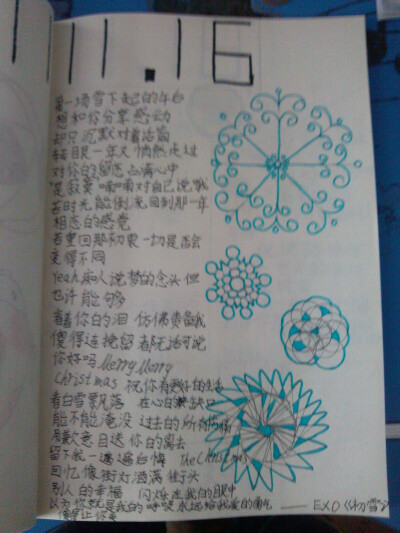 11.16
第一场雪下起的午后
想和你分享感动
却只沉默对着话筒
转眼一年又悄然走过
对你的留恋占满心中
是寂寞喃喃对自己说哦
若时光能倒流回到那一年
相恋的感觉
若重回那初衷一切是否会
变得不同
Yeah 痴人说梦的念头 但
也许能够
看着你的泪 仿佛责备我
傻得连挽留都无话可说
你好吗Merry Merry
Christmas 祝你有更好的生活
看白雪飘落 在心的缺口
能不能淹没 过去的所有伤痛
用歉意目送你的离去
留下我一遍遍自悔 the Christmas
回忆像街灯洒满街头
别人的幸福 闪烁在我的眼中
以为你就是我的 呼吸永远给我爱的勇气
EXO《初雪》